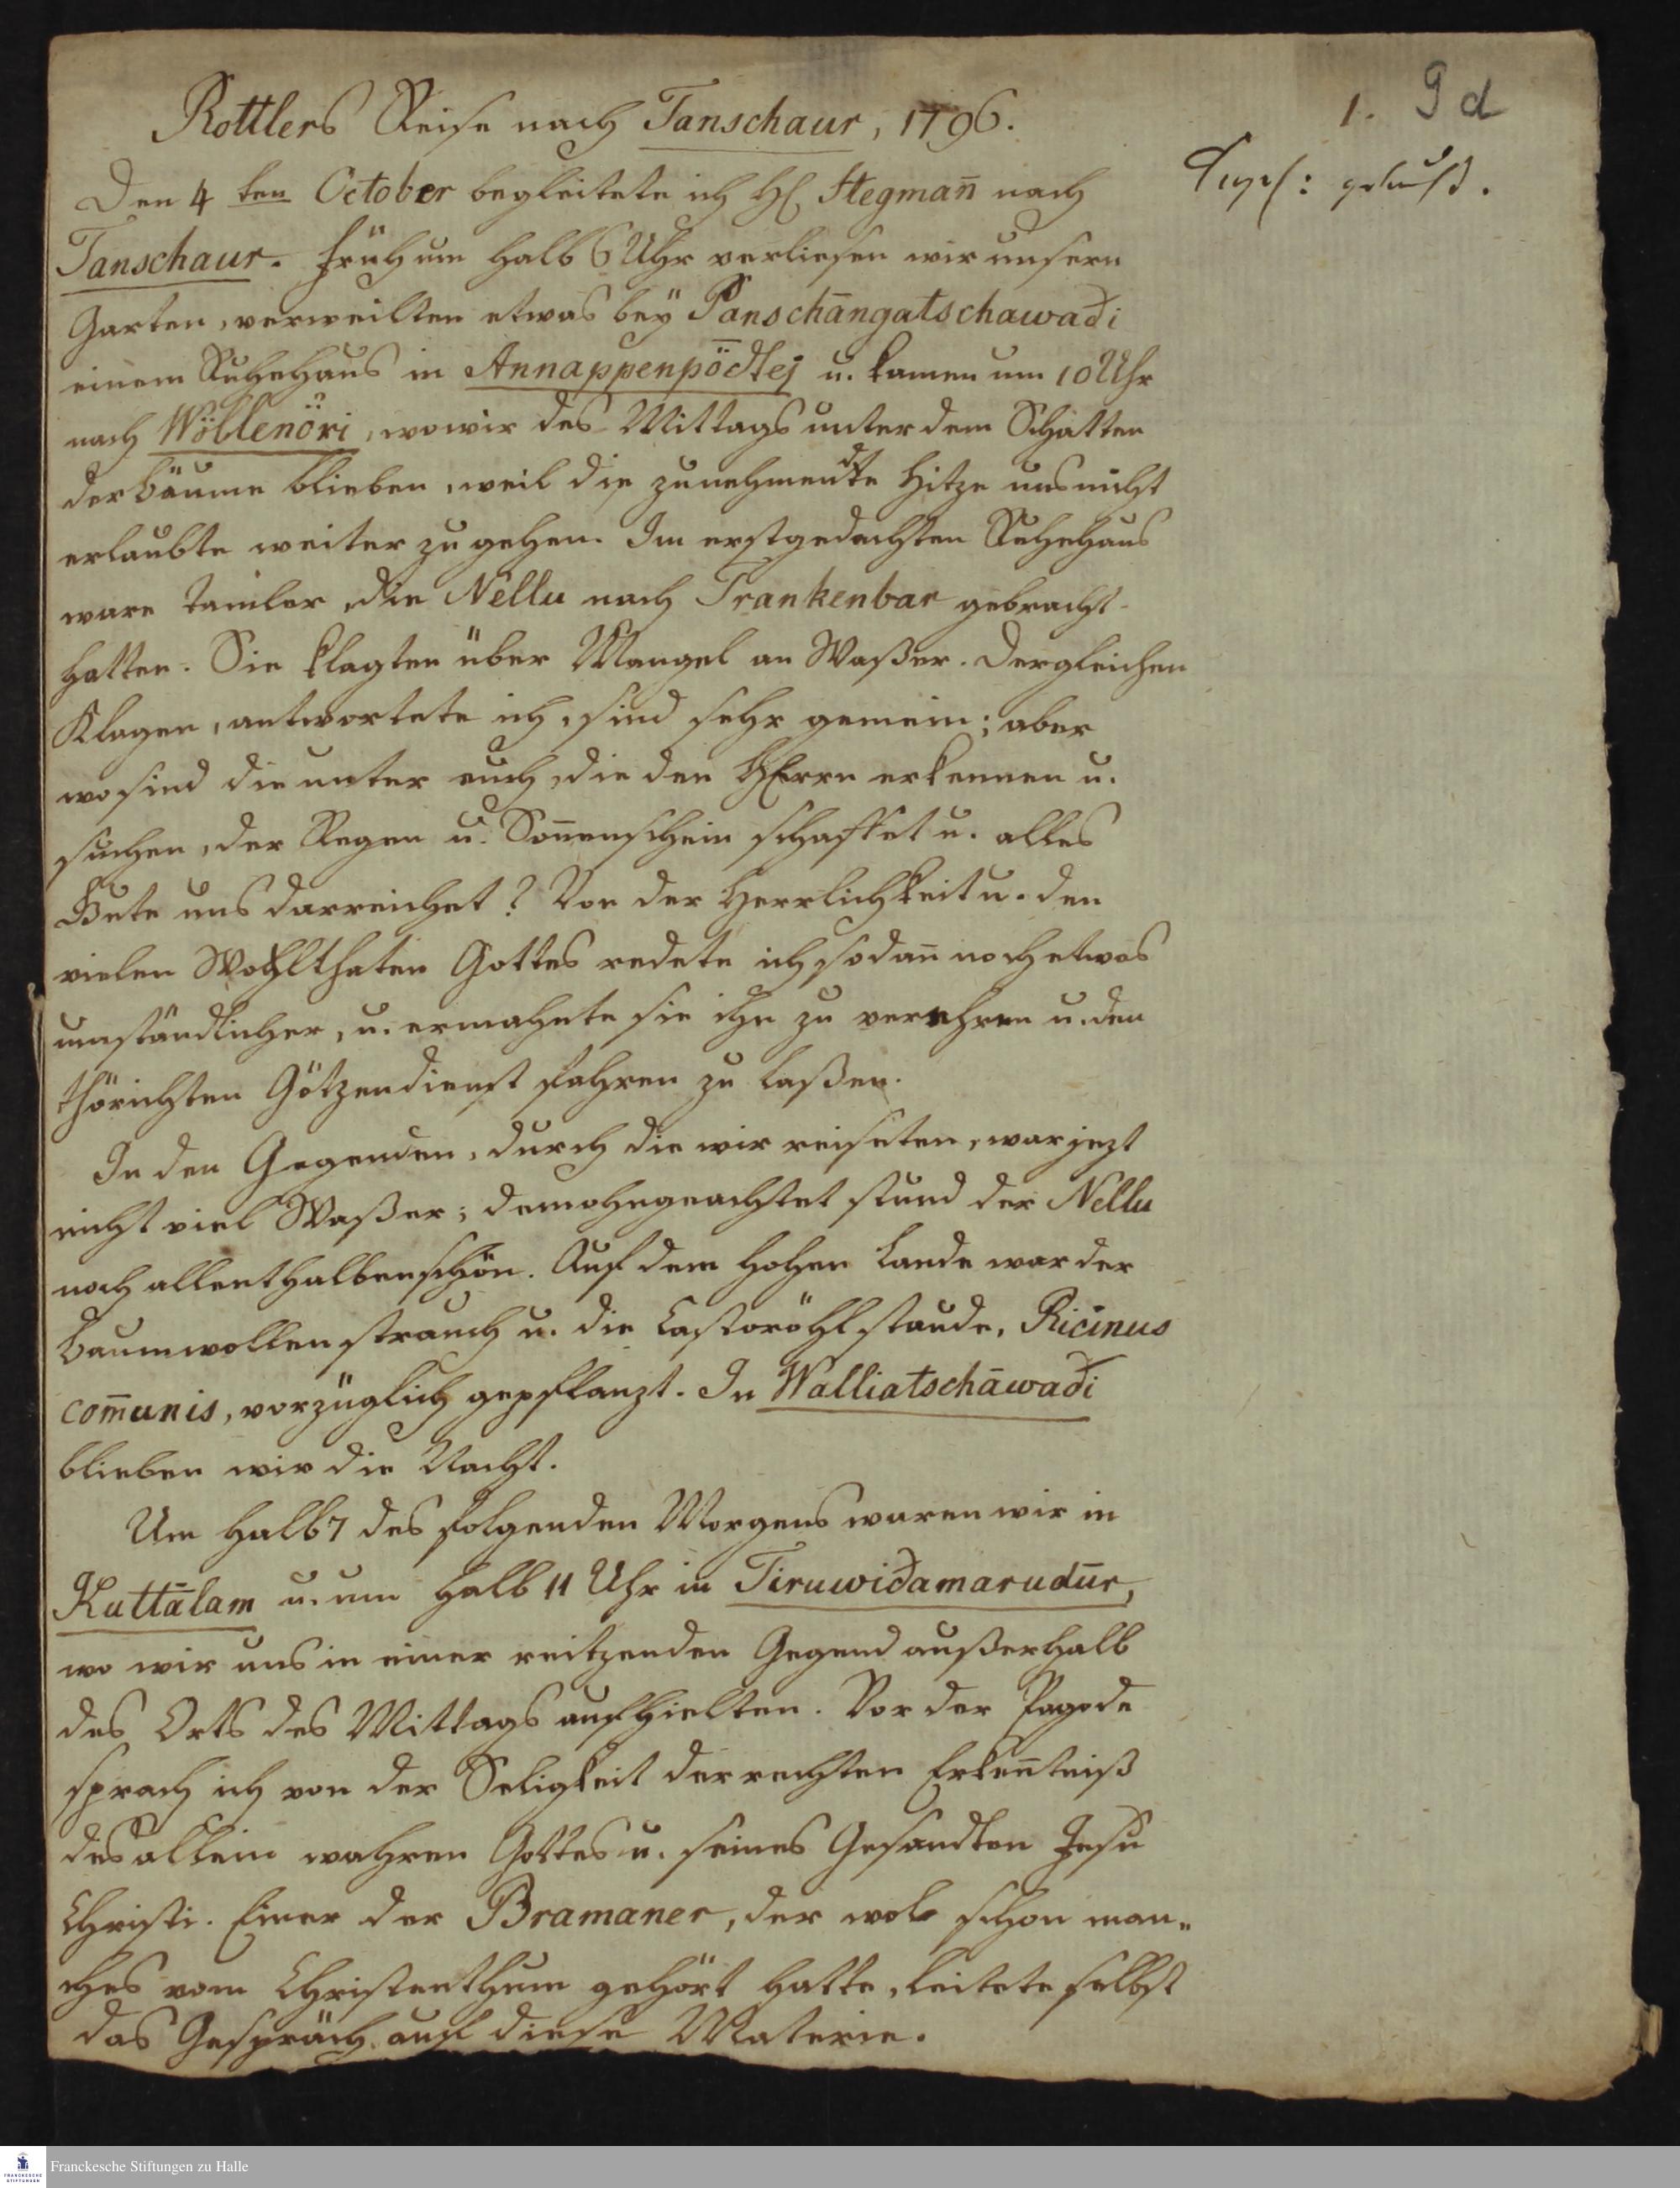 1. 9 d
Rottlers Reise nach Tanschaur, 1796.
Den 4 ten October begleitete ich H. Stegmañ nach
Tanschaur. Früh um halb 6 Uhr verliesen wir unsern
Garten, verweilten etwas bey Panschāngatschawaði
einem Ruhehaus in Annappenpȫdtej u. kamen um 10 Uhr
nach Wöllenöri, wo wir des Mittags unter dem Schatten
der Bäume blieben, weil die zunehmendte Hitze uns nicht
erlaubte weiter zu gehen. Im erstgedachten Ruhehaus
ware Tamler, die Nellu nach Trankenbar gebracht
hatten. Sie klagten über Mangel an Waßer. Dergleichen
Klagen, antwortete ich, sind sehr gemein; aber
wo sind die unter euch, die den HErrn erkennen u.
suchen, der Regen u. Soñenschein schaffet u. alles
Gute uns darreichet? Von der Herrlichkeit u. den
vielen Wohlthaten Gottes redete ich sodañ noch etwas
umständlicher, u. ermahnte sie ihn zu verehren u. den
thörichten Götzendienst fahren zu laßen.
In den Gegenden, durch die wir reiseten, war jezt
nicht viel Waßer; demohngeachtet stund der Nellu
noch allenthalben schön. Auf dem hohen Lande war der
Baumwollenstrauch u. die Castoröhlstaude, Ricinus
com̄unis, vorzüglich gepflanzt. In Walliatschāwaði
blieben wir die Nacht.
Um halb 7 des folgenden Morgens waren wir in
Kuttālam u. um halb 11 Uhr in Tiruwiðamarudūr,
wo wir uns in einer reitzenden Gegend außerhalb
des Orts des Mittags aufhielten. Vor der Pagode
sprach ich von der Seligkeit der rechten Erkeñtniß
des allein wahren Gottes u. seines Gesandten Jesu
Christi. Einer der Bramaner, der wol schon man„
ches vom Christenthum gehört hatte, leitete selbst
das Gespräch auf diese Materie.
Franckesche Stiftungen zu Halle